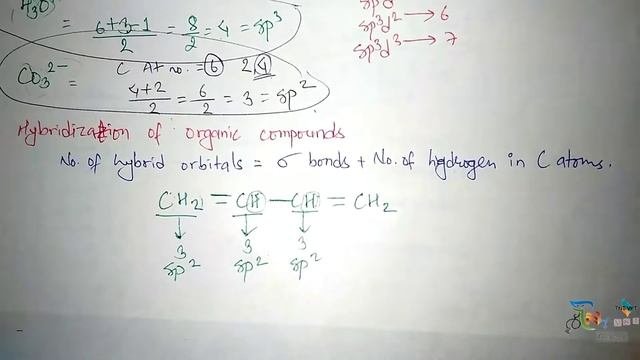 H₃O⁺
= 6+3-1/2 = 8/2 = 4 = sp³
sp³d² → 6
sp³d³ → 7
CO₃²⁻ = C At no. = 6 2 4
4+2/2 = 6/2 = 3 = sp²
Hybridization of organic compounds
No. of hybrid orbitals = σ bonds + No. of hydrogen in C atoms.
CH₂ = CH — CH = CH₂
↓ ↓ ↓
3 3 3
sp² sp² sp²